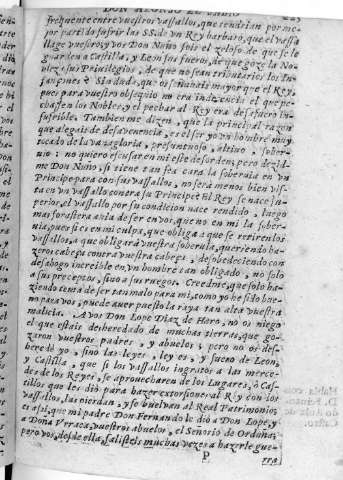 DON ALONSO EL
frequente entre vuestros vassallos, que tendrian por me-
jor partido sufrir las SS. de vn Rey barbaro, que el vassa
llage vuestro; y vos Don Nuño sois el zeloso de que se
guarden a Castilla, y Leon sus fueros, de que goze la No-
bleza sus Privilegios, de que no sean tributarios los In-
fançones? Sin duda, que os soñavais mayor que el Rey,
pues para vuestro obsequio no era indecencia el que pe-
chassen los Nobles; y el pechar al Rey era desafuero in-
sufrible. Tambien me dizen, que la principal razon
que alegais de desavenencia, es el ser yo vn hombre muy
tocado de la vanagloria, presuntuoso, altivo, sober-
uio: no quiero escusar en mi este desorden; pero dezid-
me Don Nuño, si tiene tan fea cara la soberuia en vn
Principe para con sus vassallos, no será menos bien vis-
ta en vn vassallo contra su Principe? El Rey se nace su-
perior, el vassallo por su condicion nace rendido, luego
mas forastera avia de ser en vos, que no en mi la sober-
uia; pues si es en mi culpa, que obliga a que se retiren los
vassallos, a que obligará vuestra soberuia, queriendo ha-
zeros cabeça contra vuestra cabeça, desobedeciendo con
desahogo increible en vn hombre tan obligado, no solo
a sus preceptos, sino a sus ruegos. Creedme, que solo ha-
ziendo tema de ser tan malo para mi, como yo he sido bue-
no para vos, puede auer puesto la raya tan alta vuestra
malicia. A vos Don Lope Diaz de Haro, no os niego
el que estais desheredado de muchas tierras, que go-
zaron vuestros padres, y abuelos; pero no os deshe-
heredé yo, sino las leyes, ley es, y fuero de Leon,
y Castilla, que si los vassallos ingratos a las merce-
des de los Reyes, se aprovecharen de los Lugares, ò Cas-
tillos que les diò para hazer extorsiones al Rey con los
vassallos, las pierdan, y se buelvan al Real Patrimonio;
es assi, que mi padre Don Fernando le diò a Don Lope, y
a Doña Vrraca, vuestros abuelos, el Señorio de Orduña;
pero vos, desde ella, salisteis muchas vezes a hazerle gue-
P
rra